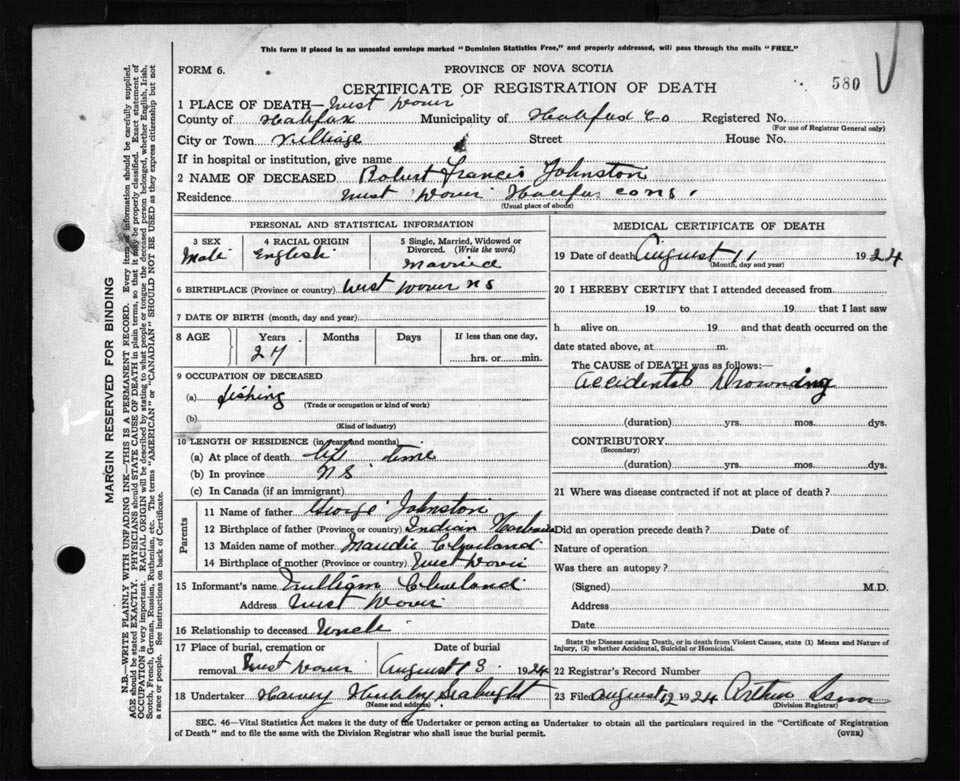 This form if placed in an unsealed envelope marked "Dominion Statistics Free," and properly addressed, will pass through the mails "FREE."
FORM 6.
PROVINCE OF NOVA SCOTIA
580
CERTIFICATE OF REGISTRATION OF DEATH
1 PLACE OF DEATH— West Dover
County of Halifax Municipality of Halifax Co Registered No.
(For use of Registrar General only)
City or Town Village Street House No.
If in hospital or institution, give name
2 NAME OF DECEASED Robert Francis Johnston
Residence West Dover Halifax
(Usual place of abode)
PERSONAL AND STATISTICAL INFORMATION
3 SEX 4 RACIAL ORIGIN 5 Single, Married, Widowed or Divorced. (Write the word)
Male English Married
6 BIRTHPLACE (Province or country) West Dover NS
7 DATE OF BIRTH (month, day and year)
8 AGE Years Months Days If less than one day,
27 hrs. or min.
9 OCCUPATION OF DECEASED
(a) fishing
(Trade or occupation or kind of work)
(b)
(Kind of industry)
10 LENGTH OF RESIDENCE (in years and months)
(a) At place of death life time
(b) In province NS
(c) In Canada (if an immigrant)
Parents
11 Name of father George Johnston
12 Birthplace of father (Province or country) Indian Harbour
13 Maiden name of mother Maudie Cleveland
14 Birthplace of mother (Province or country) West Dover
15 Informant's name William Cleveland
Address West Dover
16 Relationship to deceased Uncle
17 Place of burial, cremation or Date of burial
removal West Dover August 13 1924
18 Undertaker Harvey Hubley Seabright
(Name and address)
MEDICAL CERTIFICATE OF DEATH
19 Date of death August 11 1924
(Month, day and year)
20 I HEREBY CERTIFY that I attended deceased from
19 to 19 that I last saw
h alive on 19 and that death occurred on the
date stated above, at m.
The CAUSE OF DEATH was as follows:—
Accidental Drowning
(duration) yrs. mos. dys.
CONTRIBUTORY
(Secondary)
(duration) yrs. mos. dys.
21 Where was disease contracted if not at place of death?
Did an operation precede death? Date of
Nature of operation
Was there an autopsy?
(Signed) M.D.
Address
Date
State the Disease causing Death, or in death from Violent Causes, state (1) Means and Nature of Injury, (2) whether Accidental, Suicidal or Homicidal.
22 Registrar's Record Number
23 Filed August 12 1924 Arthur
(Division Registrar)
SEC. 46—Vital Statistics Act makes it the duty of the Undertaker or person acting as Undertaker to obtain all the particulars required in the "Certificate of Registration
of Death" and to file the same with the Division Registrar who shall issue the burial permit.
(OVER)
MARGIN RESERVED FOR BINDING
N.B.—WRITE PLAINLY WITH UNFADING INK—THIS IS A PERMANENT RECORD. Every item of information should be carefully supplied.
AGE should be stated EXACTLY. PHYSICIANS should STATE CAUSE OF DEATH in plain terms, so that it may be properly classified. Exact statement of
OCCUPATION is very important. RACIAL ORIGIN will be described by stating to what people or tongue the deceased person belonged, whether English, Irish,
Scotch, French, German, Russian, Ruthenian, etc. The terms "AMERICAN" or "CANADIAN" SHOULD NOT BE USED as they express citizenship but not
a race or people. See instructions on back of Certificate.